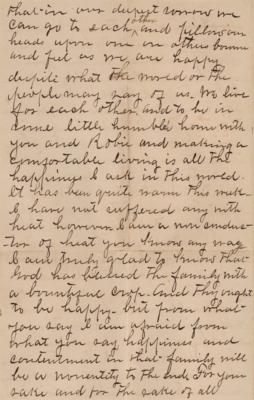 that in our depest sorrow we
can go to each other and pillow our
heads upon one on others bosom
and feel as we are happy
despite what the world or the
people may say of us. We live
for each other, and to be in
some little humble home with
you and Robie and making a
comfortable living is all the
happiness I ask in this world.
It has been quite warm this week
I have not suffered any with
heat however. I am a non conduc-
tor of heat you know any way
I am truly glad to know that
God has blessed the family with
a bountiful crop. And they ought
to be happy. but from what
you say I am afraid from
what you say happiness and
contentment in that family will
be a nonentity to the end. For your
sake and for the sake of all